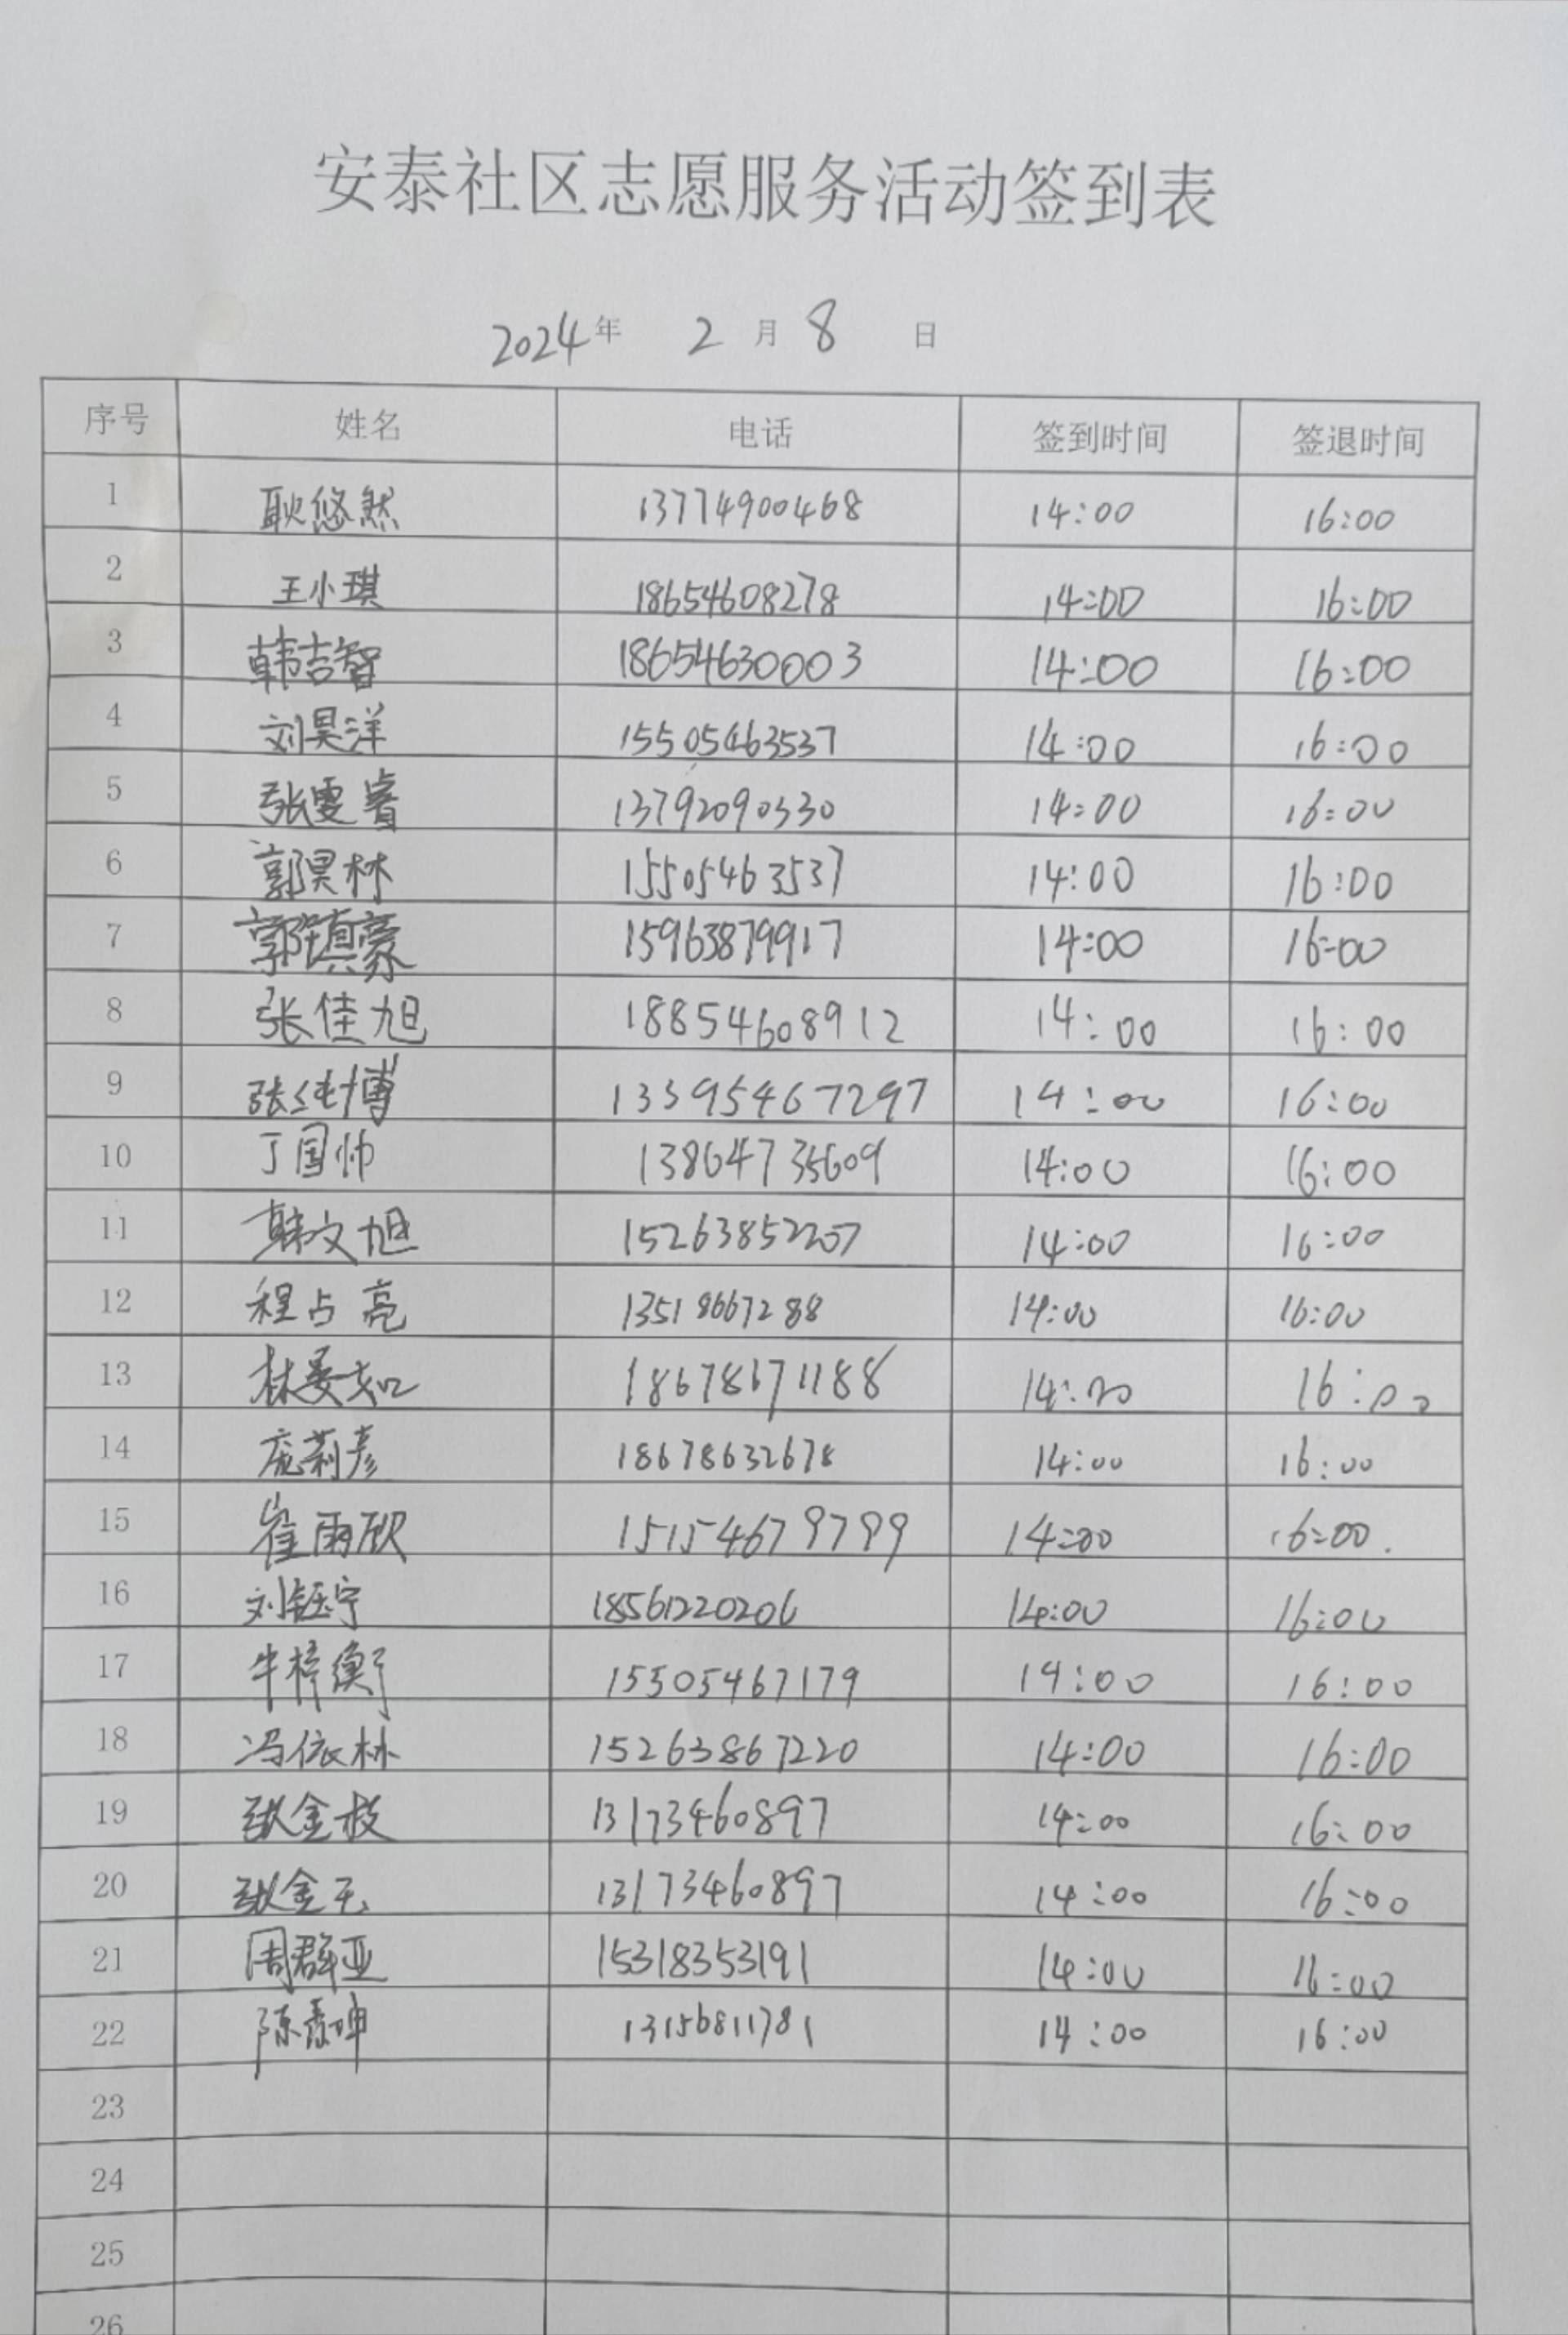 安泰社区志愿服务活动签到表
2024年 2月8 日
序号 姓名 电话 签到时间 签退时间
1 耿悠然 13774900468 14:00 16:00
2 王小琪 18654608278 14:00 16:00
3 韩吉智 18654630003 14:00 16:00
4 刘昊洋 15505463537 14:00 16:00
5 张雯睿 13792090330 14:00 16:00
6 郭昊林 15505463537 14:00 16:00
7 郭镇豪 15963879917 14:00 16:00
8 张佳旭 18854608912 14:00 16:00
9 张纯博 13395467297 14:00 16:00
10 丁国帅 13864735609 14:00 16:00
11 韩文旭 15263852207 14:00 16:00
12 程占亮 13518667288 14:00 16:00
13 林晏如 18678671188 14:00 16:00
14 庞莉彦 18678632678 14:00 16:00
15 崔雨欣 15154679799 14:00 16:00.
16 刘钰宁 18561220206 14:00 16:00
17 牛梓衡 15505467179 14:00 16:00
18 冯依林 15263867220 14:00 16:00
19 张金枝 13173460897 14:00 16:00
20 张金玉 13173460897 14:00 16:00
21 周群亚 15318353191 14:00 16:00
22 陈泰坤 13156811781 14:00 16:00
23
24
25
26